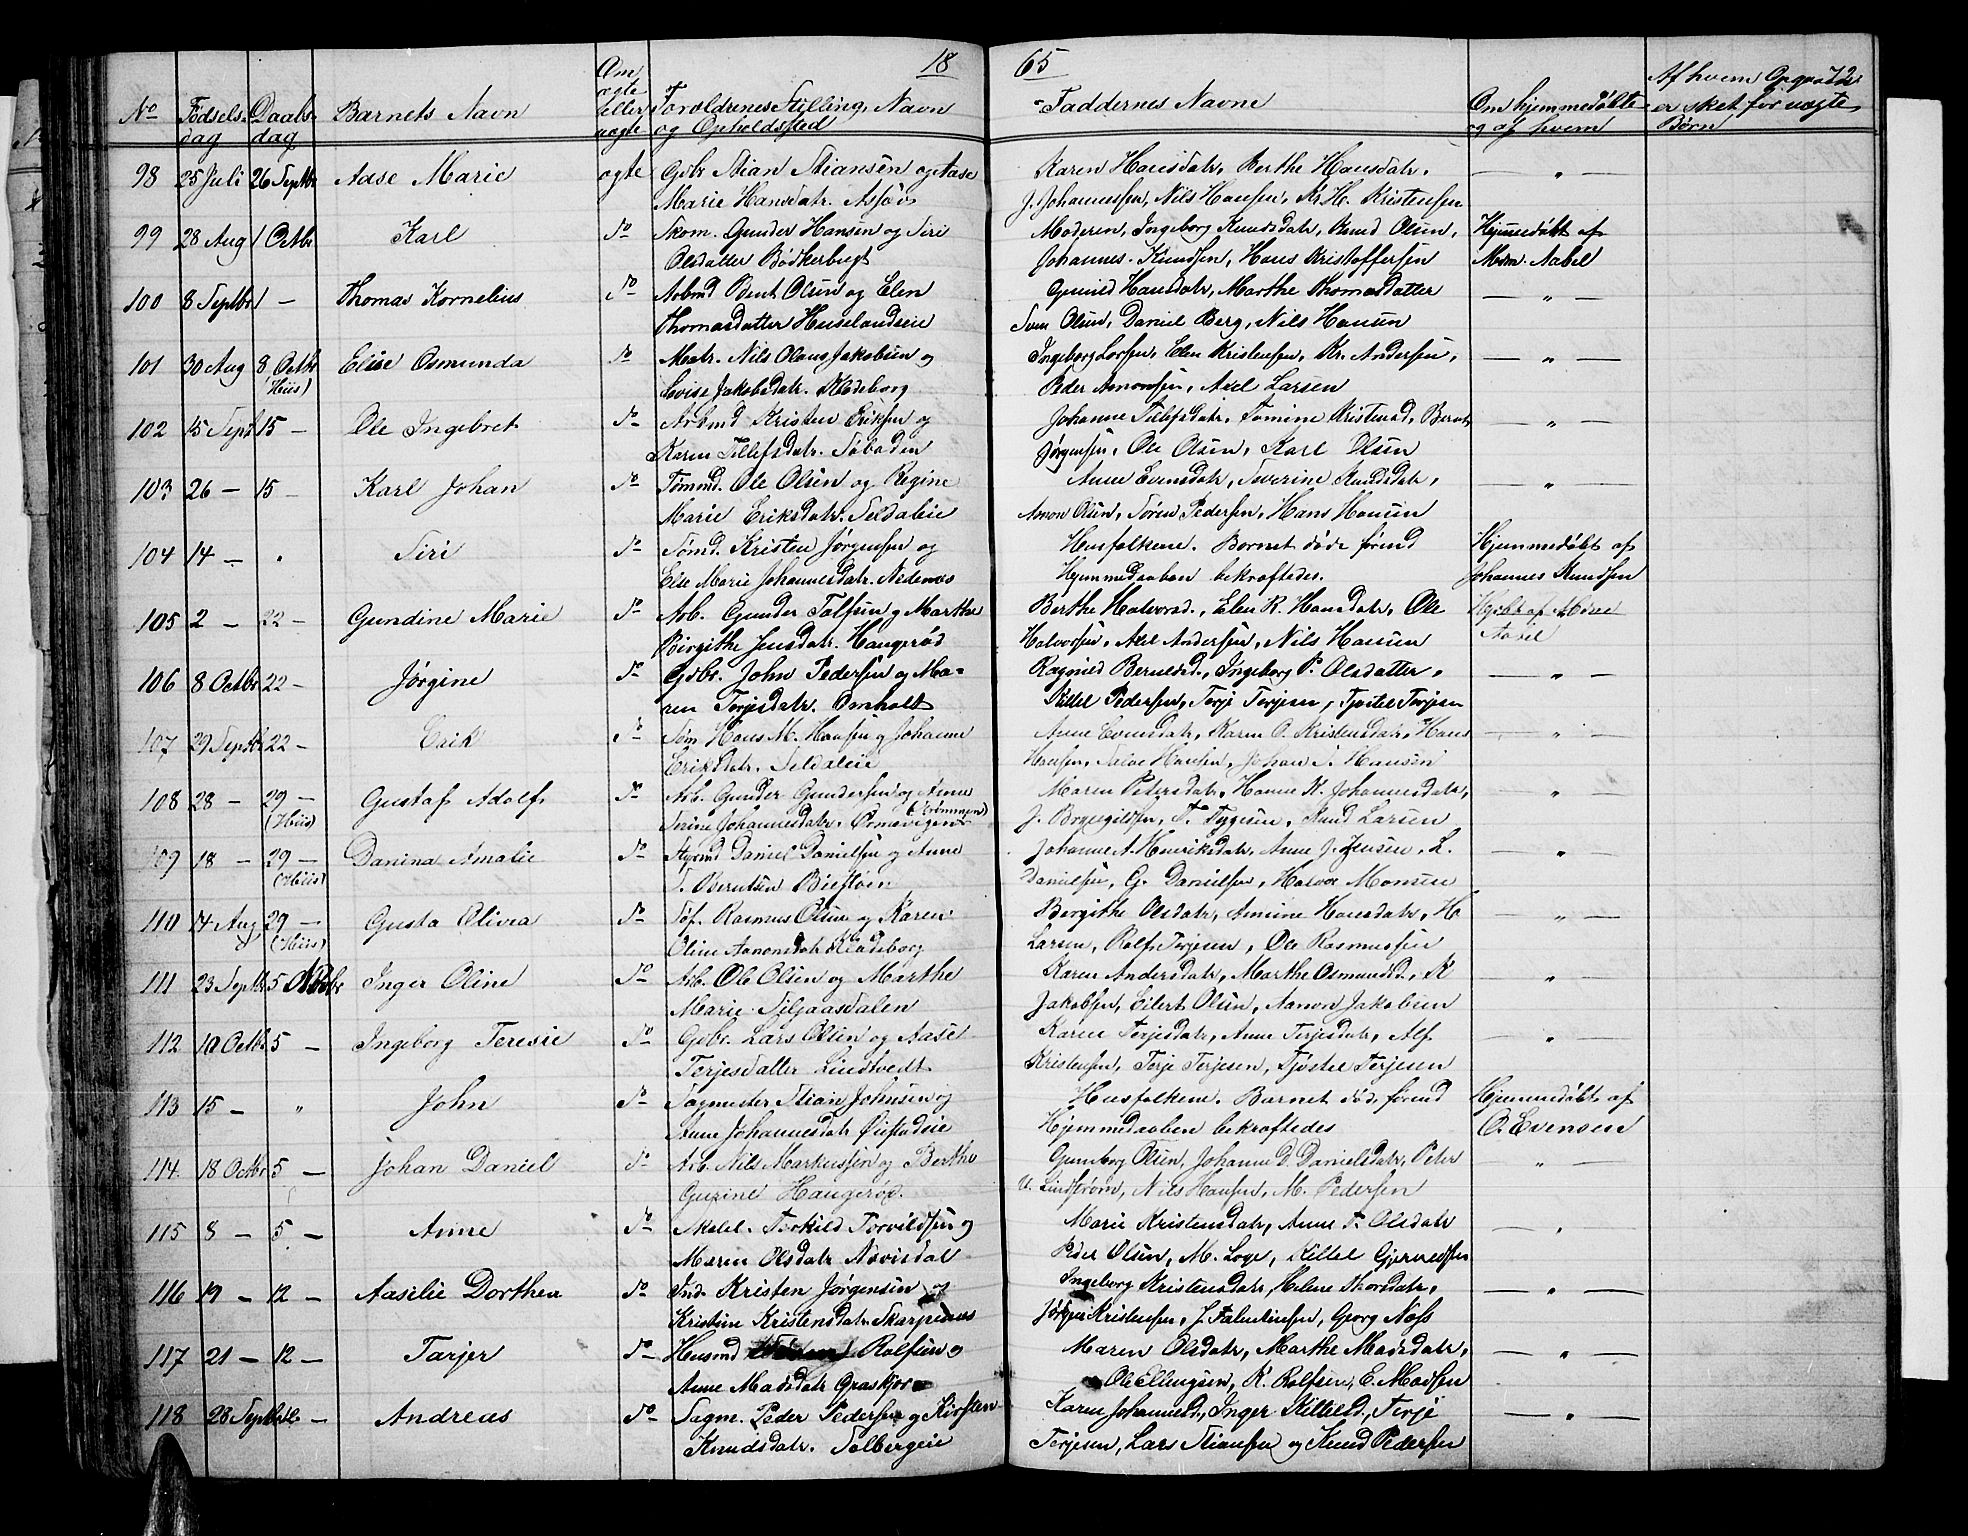 18 65
72
No Fødsels- Daabs- Barnets Navn Om ægte Eller uægte Forældrenes Stilling, Navn Faddernes Navne Om hjemmedøbte Af hvem Opgaven
dag dag og Opholdssted og af hvem er sket for uægte Børn
98 25 Juli 26 Septbr Aase Marie ægte Gdbr Stian Stiansen og Aase Karen Hansdatr, Berthe Hansdatr, — " —
Marie Hansdatr. J. Johannessen, Nils Hansen, Kr. H. Kristensen
99 28 Aug 1 Octbr Karl Do Skom. Gunder Hansen og Siri Moderen, Ingeborg Knudsdatr, Knud Olsen, Hjemmedøbt af
Olsdatter Bødkerbugt Johannes Knudsen, Hans Kristoffersen Aabel
100 8 Septbr 1 — Thomas Kornelius Do Arbmd Bent Olsen og Elen Gunild Hansdatr, Marthe Thomasdatter — " —
Thomasdatter Huselandseie Sven Olsen, Daniel Berg, Nils Hansen
101 30 Aug 8 Octbr Elise Osmunda Do Matr. Nils Olaus Jakobsen og Ingeborg Larsen, Elen Kristensen, Kr. Andersen, — " —
(Hiis) Lovise Jakobsdatr. Klodeborg Peder Amonsen, Axel Larsen
102 15 Sept 15 — Ole Ingebret Do Arbmd Kristen Eriksen og Johanne Tellefsdatr, Tomine Kristensd, Bernt — " —
Karen Tellefsdatr. Jørgensen, Ole Olsen, Karl Olsen
103 26 — 15 — Karl Johan Do Tømmd. Ole Olsen og Regine Anne Evensdatr, Severine Knudsdatr, — " —
Marie Eriksdatr. Seldaleie Amon Olsen, Søren Pedersen, Hans Hansen
104 14 — " Siri Do Tømd. Kristen Jørgensen og Husfolkene. Barnet døde førend Hjemmedøbt af
Else Marie Johannesdatr. Nedenæs Hjemmedaaben bekræftedes. Johannes Knudsen
105 2 — 22 — Gundine Marie Do Arb. Gunder Tolfsen og Marthe Berthe Halvorsd., Elen K. Hansdatr, Ole Hjdøbt af
Birgithe Jensdatr. Haugerød Halvorsen, Axel Andersen, Nils Hansen Aabel
106 8 Octbr 22 — Jørgine Do Gdbr. John Pedersen og Ma- Ragnild Berulsd., Ingeborg P. Olsdatter, — " —
ren Terjesdatr. Omholt Kittel Pedersen, Terje Terjesen, Tjøstel Terjesen
107 29 Septbr 22 — Erik Do Tøm Hans M. Hansen og Johanne Anne Evensdatr, Karen O. Kristensdatr, Hans — " —
Eriksdatr. Seldaleie Hansen, Salve Hansen, Johan S. Hansen
108 28 — 29 — Gustaf Adolf Do Arb. Gunder Gundersen og Anne Maren Pedersdatr, Hanne K. Johannesdatr, — " —
(Hiis) Serine Johannesdatr. Ormevigen (Tromøen) J. Bryngildsen, T. Tygesen, Knud Larsen
109 18 — 29 — Danina Amalie Do Styrmd Daniel Danielsen og Anne Johanne A. Henriksdatr, Anne J. Jensen, L. — " —
(Hiis) T. Berntsen Danielsen, G. Danielsen, Halvor Monsen
110 14 Aug 29 — Gusta Olivia Do Søf. Rasmus Olsen og Karen Bergithe Olsdatr, Amine Hansdatr, H — " —
(Hiis) Oline Aanonsdatr Klodeborg Larsen, Rolf Terjesen, Ole Rasmussen
111 23 Septbr 5 Novbr Inger Oline Do Arb. Ole Olsen og Marthe Karen Andersdatr, Marthe Osmundsd., K "
Marie Jakobsen, Eilert Olsen, Aanon Jakobsen
112 10 Octbr 5 — Ingeborg Teresie Do Gdbr. Lars Olsen og Aase Karen Terjesdatr, Anne Terjesdatr, Alf — " —
Terjesdatter Lindtvedt Kristensen, Terje Terjesen, Tjøstel Terjesen
113 15 — " John Do Sagmester Stian Johnsen og Husfolkene. Barnet død førend Hjemmedøbt af
Anne Johannesdatr Øiestadeie Hjemmedaaben bekræftedes O. Evensen
114. 18 Octbr 5 — Johan Daniel Do Arb. Nils Markussen og Berthe Gunnborg Olsen, Johanne D. Danielsdatr, Peter — " —
Gurine Haugerød. U. Lindstrøm, Nils Hansen, M. Pedersen
115 8 — 5 — Anne Do Skolel. Torkild Torvildsen og Marie Kristensdatr, Anne T. Olsdatr — " —
Maren Olsdatr Peder Olsen, M. Loge, Kittel Gjerulfsen
116 19 — 12 — Aaselie Dorthea Do Ind. Kristen Jørgensen og Ingeborg Kristensdatr, Helene Thorsdatr, — " —
Kristine Kristensdatr Skarpenæs Jørgen Kristensen, J. Falentinsen, Georg Næss
117 21 — 12 — Tarjer Do Husmd Rolfsen og Maren Olsdatr, Marthe Madsdatr, — " —
Anne Madsdatr Graskjær Ole Ellingsen, K. Rolfsen, E. Madsen
118 28 Septbr 12 — Andreas Do Sagm. Peder Pedersen og Kirsten Karen Johannesd., Inger Kittelsd., Terje — " —
Knudsdatr. Solbergeie Terjesen, Lars Stiansen og Knud Pedersen